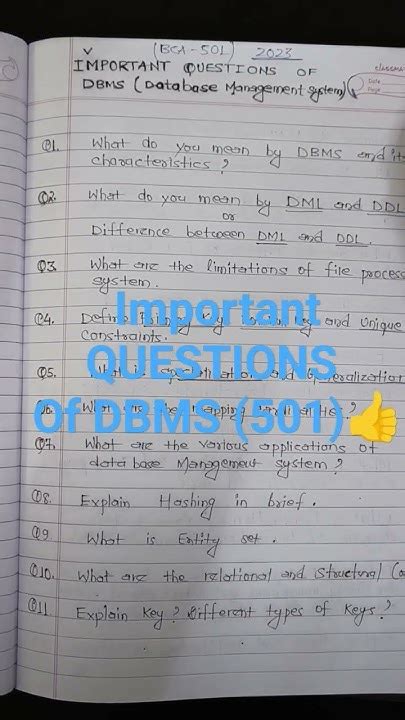 (BCA-501) 2023
IMPORTANT QUESTIONS OF
DBMS (Database Management System)
classma
Date
Page
Q1. What do you mean by DBMS and its
characteristics?
Q2. What do you mean by DML and DDL
or
Difference between DML and DDL.
Q3 What are the limitations of file process
system.
Q4. Define Key and Unique
constraints.
Q5. What is and
Q6. What are mapping
Q7. What are the various applications of
data base Management system?
Q8. Explain Hashing in brief.
Q9 What is Entity set.
Q10. What are the relational and structural
Q11 Explain Key? Different types of Keys?
Important
QUESTIONS
Of DBMS (501)👍